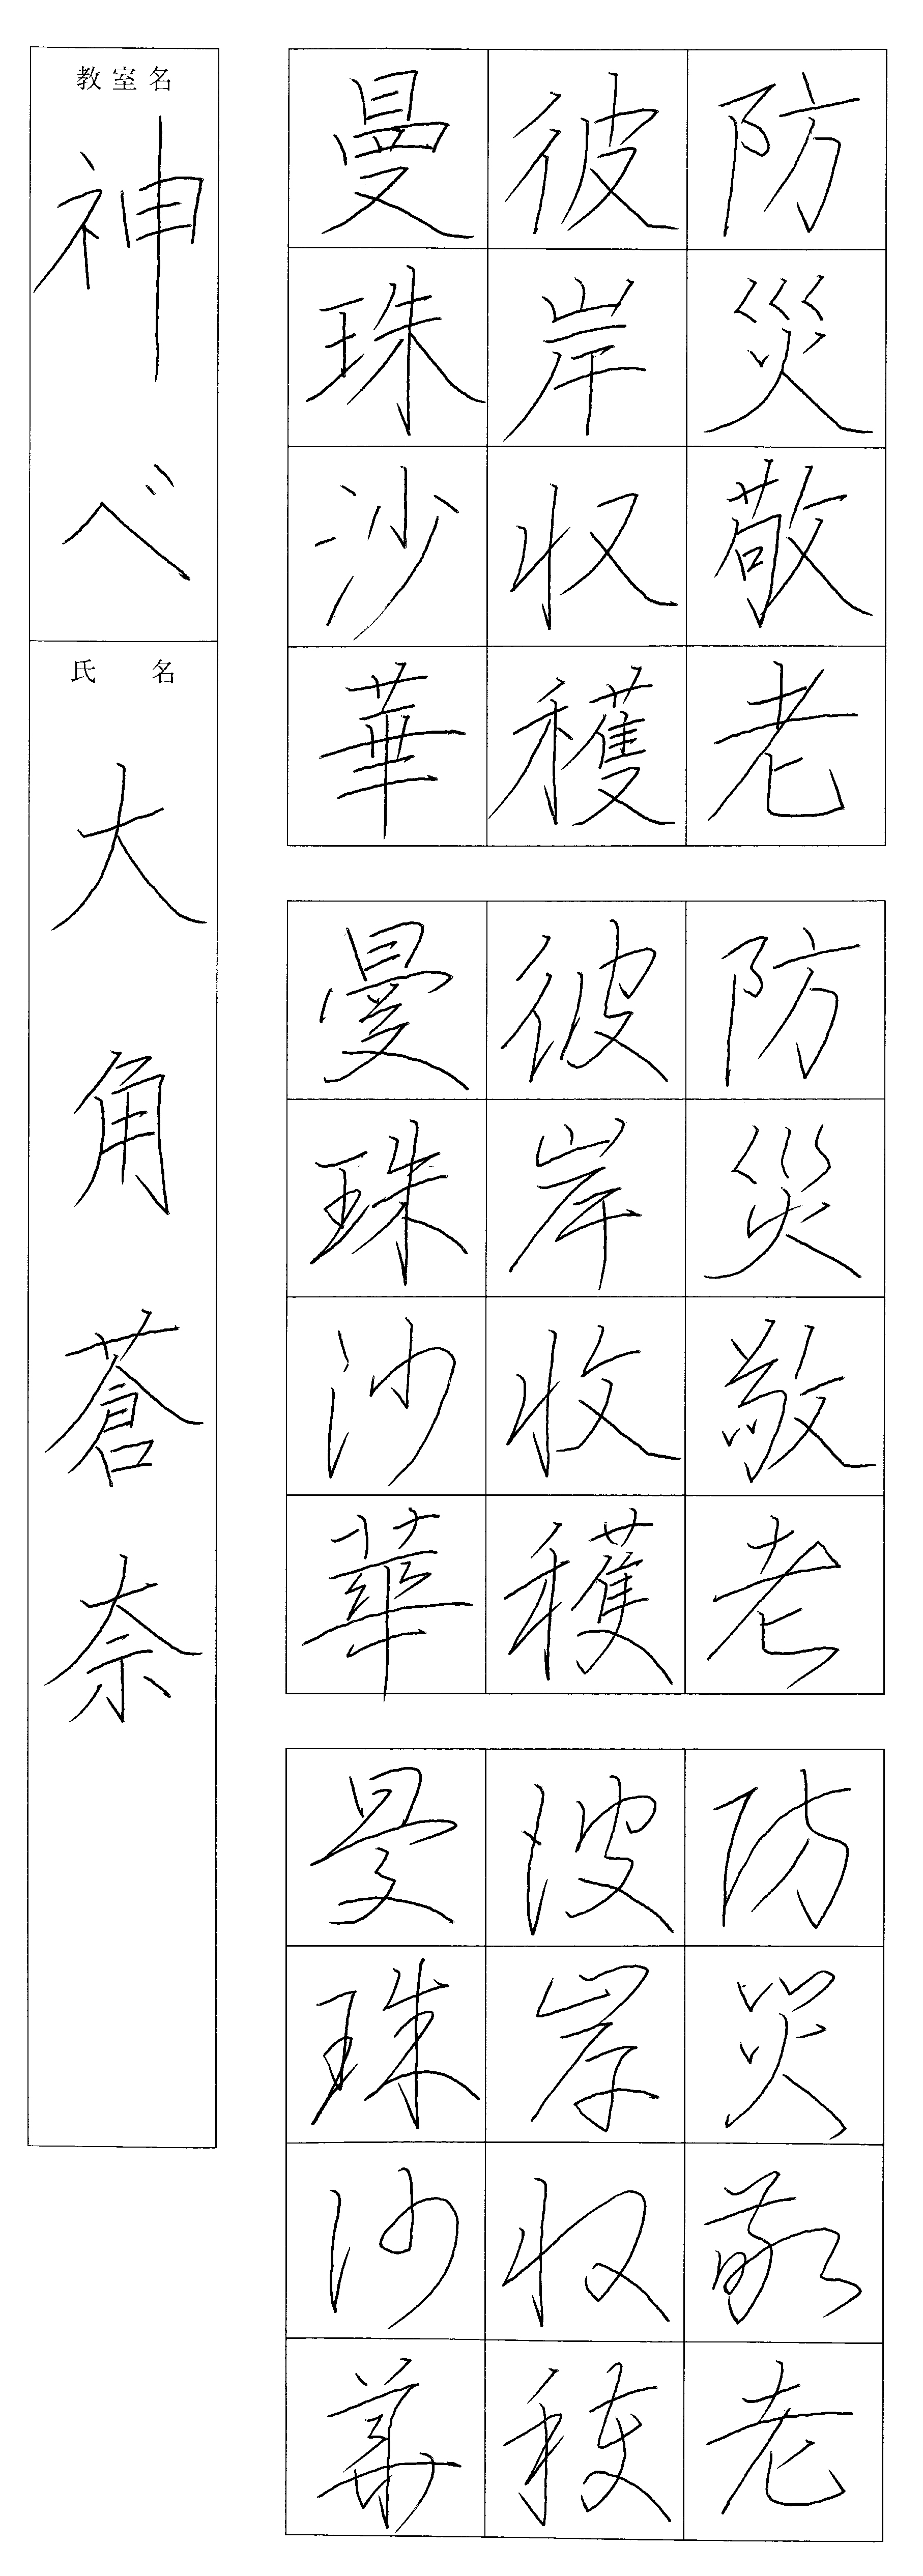 防災敬老
彼岸収穫
曼珠沙華
防災敬老
彼岸收穫
曼珠沙華
防災敬老
彼岸収穫
曼珠沙華
教室名
神べ
氏名
大角蒼奈